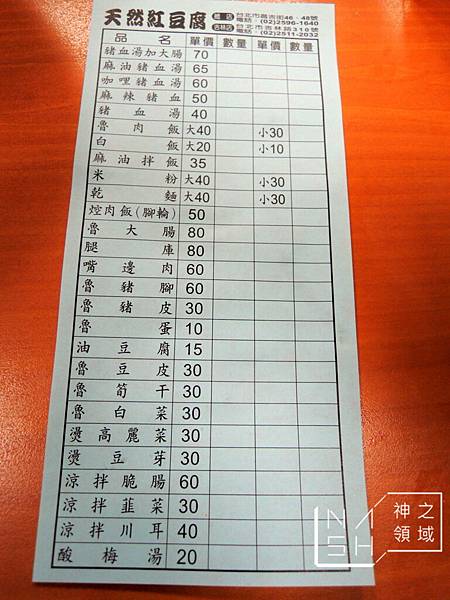 天然紅豆腐 台北市昌吉街46、48號
電話：(02)2596-1640
吉林店 台北市吉林路310號
電話：(02)2511-2032
品名 單價 數量 單價 數量
豬血湯加大腸 70
麻油豬血湯 65
咖哩豬血湯 60
麻辣豬血 50
豬血湯 40
魯肉飯 大40 小30
白飯 大20 小10
麻油拌飯 35
米粉 大40 小30
乾麵 大40 小30
焢肉飯(腳輪) 50
魯大腸 80
腿庫 80
嘴邊肉 60
魯豬腳 60
魯豬皮 30
魯蛋 10
油豆腐 15
魯豆皮 30
魯筍干 30
魯白菜 30
燙高麗菜 30
燙豆芽 30
涼拌脆腸 60
涼拌韭菜 30
涼拌川耳 40
酸梅湯 20
NISH 神之領域